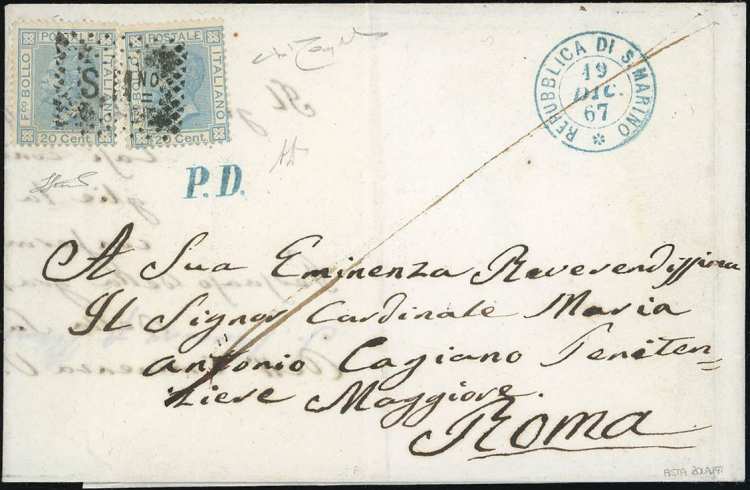 POSTALE
ITALIANO
F.CO BOLLO
20 Cent
POSTALE
ITALIANO
F.CO BOLLO
20 Cent
REPUBBLICA DI S. MARINO
19
DIC.
67
P.D.
A Sua Eminenza Reverendissima
Il Signor Cardinale Maria
Antonio Cagiano Peniten=
ziere Maggiore.
Roma